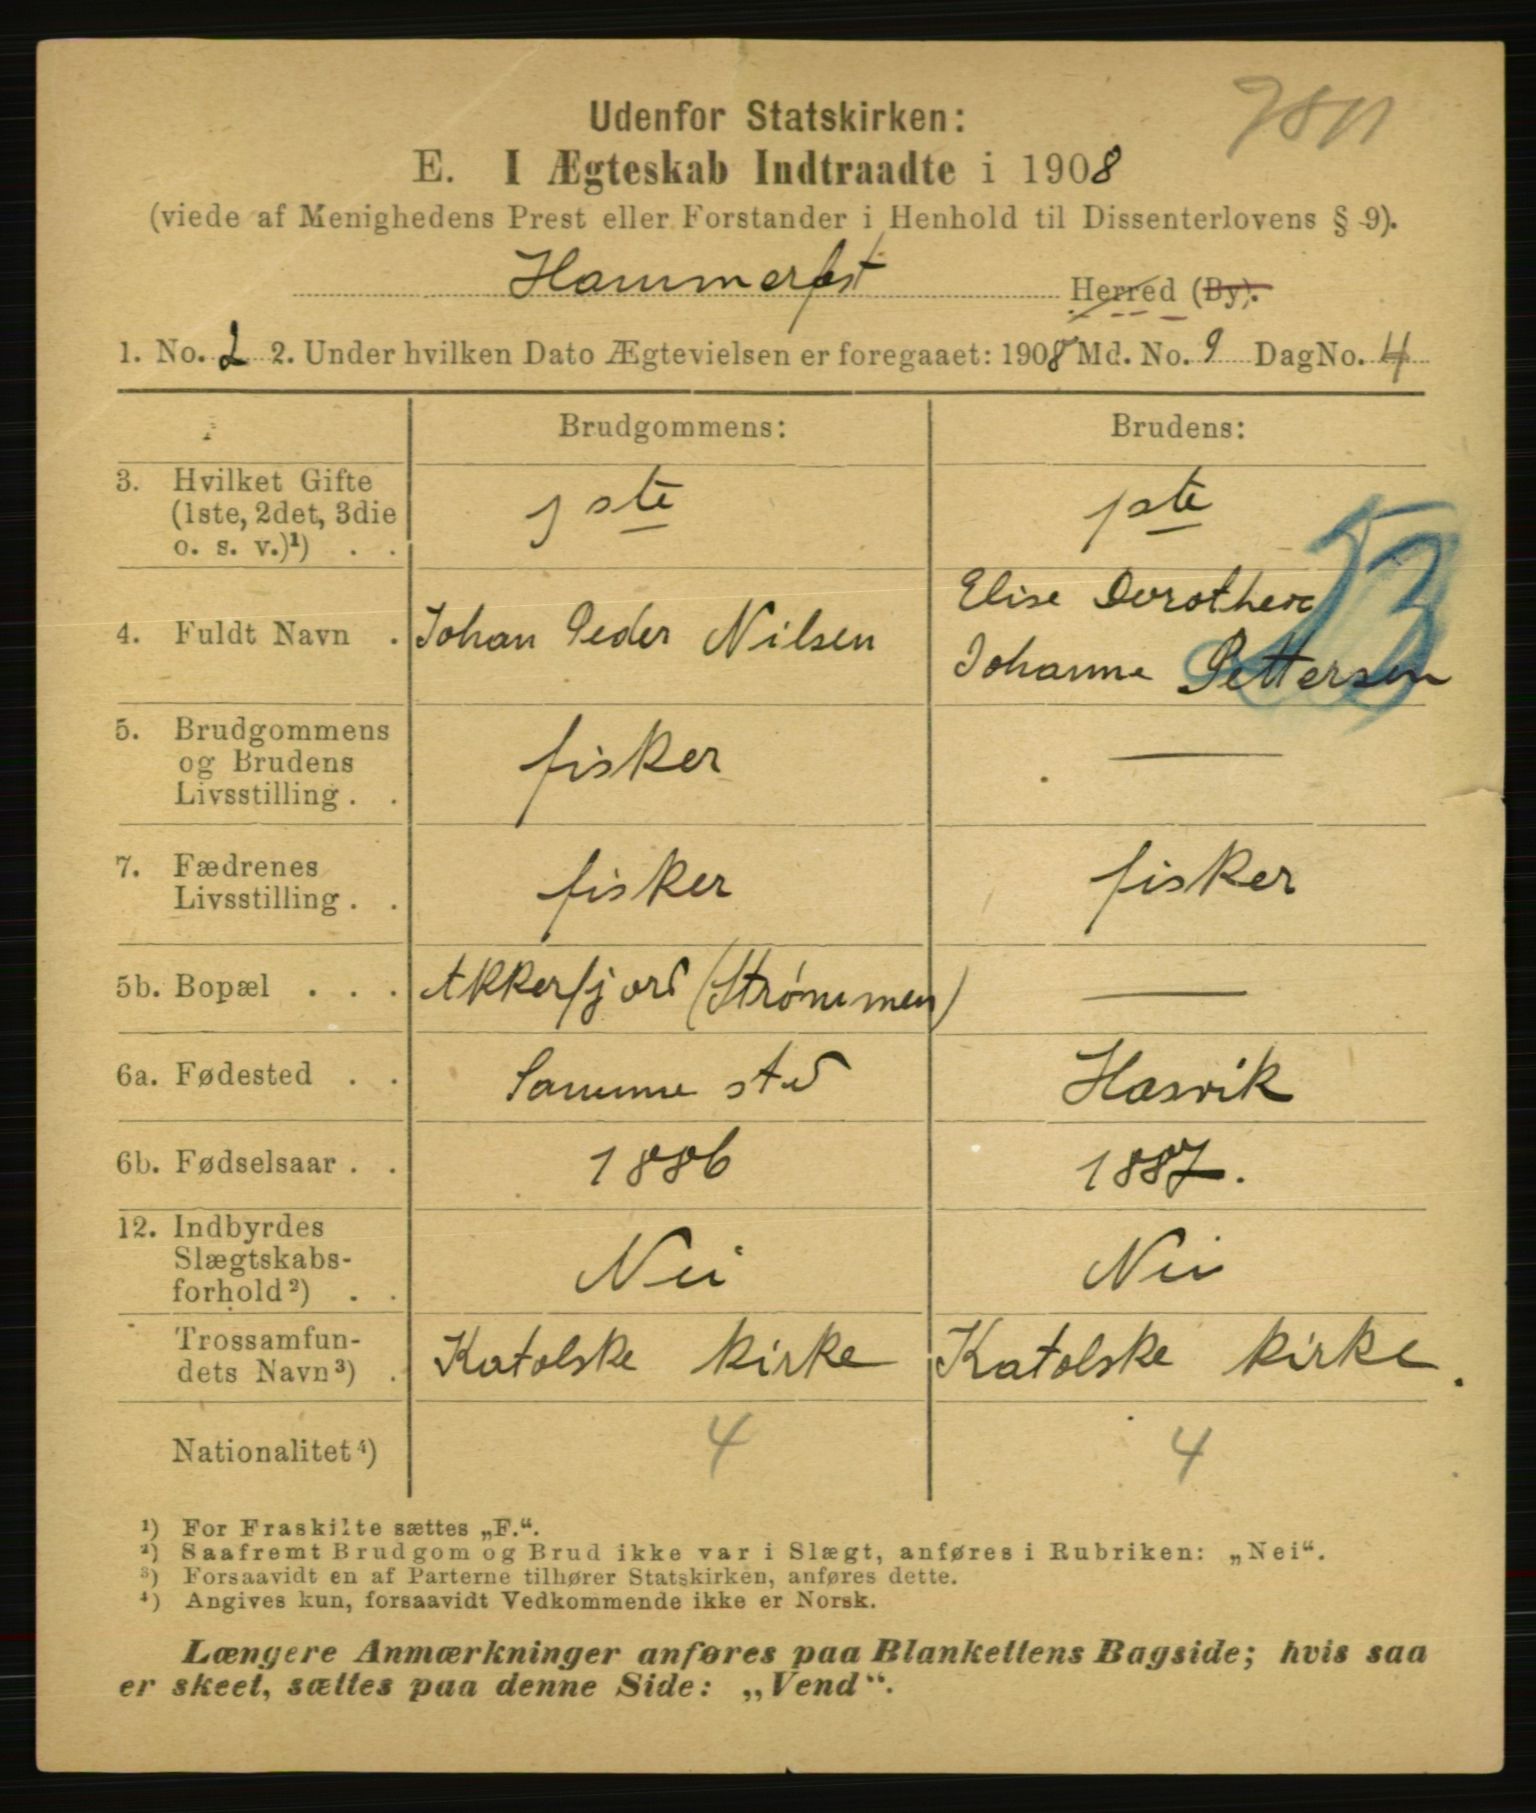 Udenfor Statskirken:
E. I Ægteskab Indtraadte i 1908
(viede af Menighedens Prest eller Forstander i Henhold til Dissenterlovens § 9).
Hammerfest Herred (By).
1. No. 2 2. Under hvilken Dato Ægtevielsen er foregaaet: 1908 Md. No. 9 Dag No. 4
Brudgommens: Brudens:
3. Hvilket Gifte
(1ste, 2det, 3die
o. s. v.)¹) . . 1ste 1ste
4. Fuldt Navn . Johan Peder Nilsen Elise Dorothea
Johanne Pettersen
53
5. Brudgommens
og Brudens
Livsstilling . . fisker —
7. Fædrenes
Livsstilling . . fisker fisker
5b. Bopæl . . . Akkerfjord (Strømmen) —
6a. Fødested . . Samme sted Hasvik
6b. Fødselsaar . . 1886 1887.
12. Indbyrdes
Slægtskabs-
forhold ²) . . Nei Nei
Trossamfun-
dets Navn ³) . Katolske kirke Katolske kirke.
Nationalitet ⁴) 4 4
¹) For Fraskilte sættes „F.“.
²) Saafremt Brudgom og Brud ikke var i Slægt, anføres i Rubriken: „Nei“.
³) Forsaavidt en af Parterne tilhører Statskirken, anføres dette.
⁴) Angives kun, forsaavidt Vedkommende ikke er Norsk.
Længere Anmærkninger anføres paa Blankettens Bagside; hvis saa
er skeet, sættes paa denne Side: „Vend“.